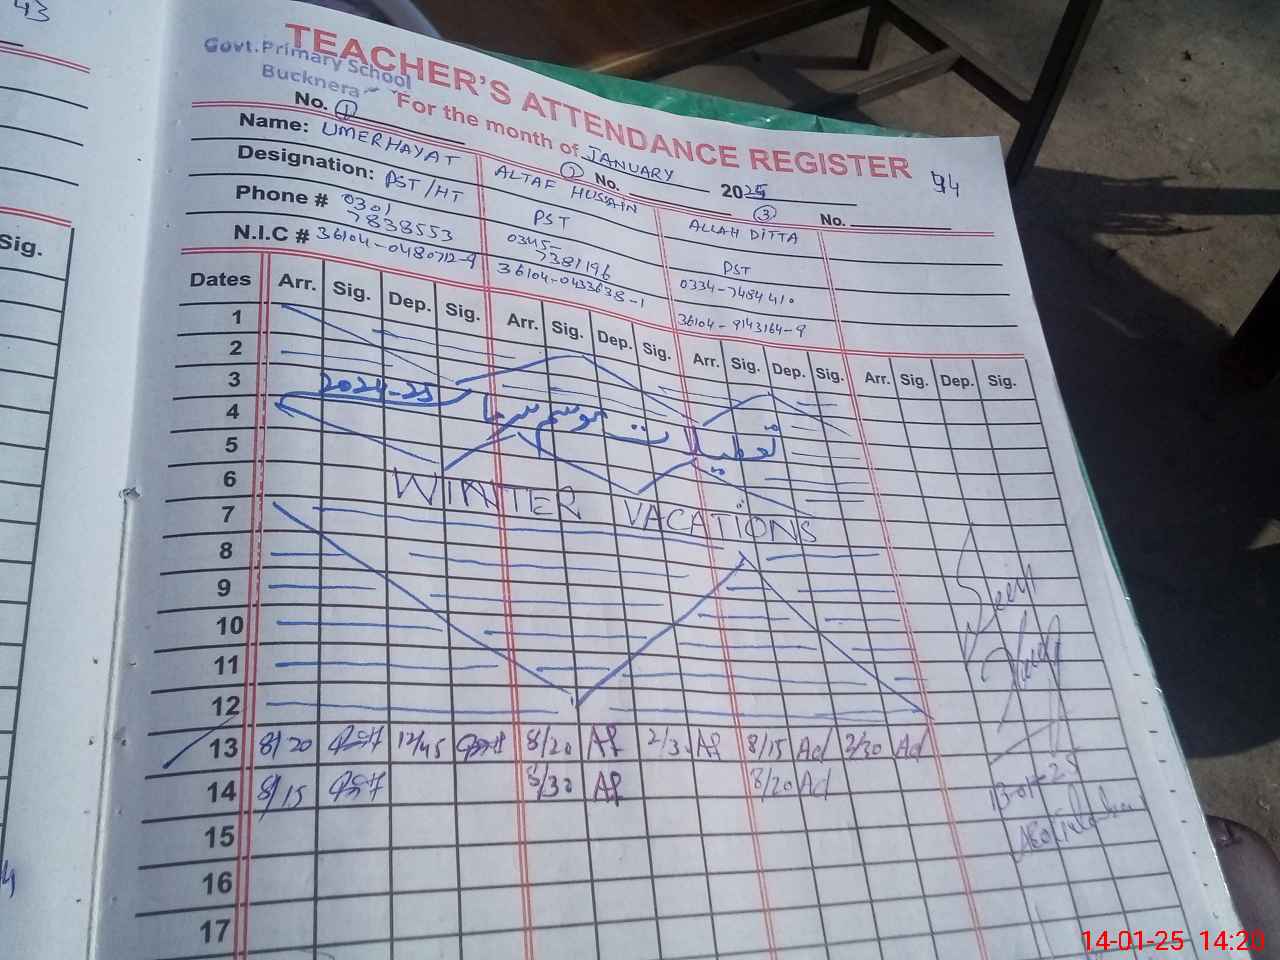 43
TEACHER'S ATTENDANCE REGISTER
Govt.Primary School
Bucknera
For the month of JANUARY 2025
94
No. ① ② No. ③ No.
Name: UMERHAYAT ALTAF HUSSAIN ALLAH DITTA
Designation: PST/HT PST PST
Phone # 0301 7838553 0345-7381196 0334-7484410
N.I.C # 36104-0480712-9 36104-0433638-1 36104-9143164-9
Sig.
Dates Arr. Sig. Dep. Sig. Arr. Sig. Dep. Sig. Arr. Sig. Dep. Sig. Arr. Sig. Dep. Sig.
1
2
3
تعطیلات موسم سرما 2024-25
4
5
6
WINTER VACATIONS
7
8
9
10
11
12
13 8/20 12/45 8/20 Af 2/30 Af 8/15 Ad 2/30 Ad
14 8/15 8/30 Af 8/20 Ad
13-01-25
15
16
17
14-01-25 14:20